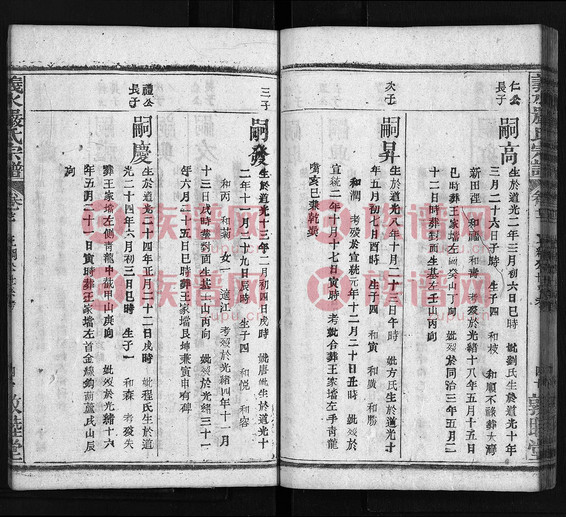 仁公
長子
嗣高
生於道光二年三月初六日巳時 妣劉氏生於道光十年
三月二十六日子時 生子四 和枝 和順不祿葬大灣
新田徑 和福 和青 考歿於光緒十八年五月十五日
巳時葬王家壋左 癸山丁向 妣歿於同治三年五月二
十二日時葬對面生基左壬山丙向
次子
嗣昇
生於道光八年十月二十日午時 妣方氏生於道光十
年五月初七日酉時 生子四 和寅 和廣 和勝
和潤 考歿於宣統元年十二月二十日丑時 妣歿於
宣統二年十月十七日寅時 考妣合葬王家壋左手青龍
嘴亥巳兼乾巽
三子
嗣發
生於道光十三年二月初四日戌時 妣唐氏生於道光十
二年十一月二十九日辰時 生子四 和悦 和容
和丙 和菊 女一適江 考歿於光緒四年十一月
十三日戌時葬對面生基壬山丙向 妣歿於光緒三十一
年六月二十五日巳時葬王家壋艮坤兼寅申有碑
禮公
長子
嗣慶
生於道光二十四年正月二十二日戌時 妣程氏生於道
光二十四年八月初三日巳時 生子一 和森 考歿失
葬王家壋左側青龍中截甲山庚向 妣歿於光緒十六
年五月二十一日寅時葬王家壋左首金線鉤葫蘆式山辰
向
義水嚴氏宗譜
敦睦堂
族谱网